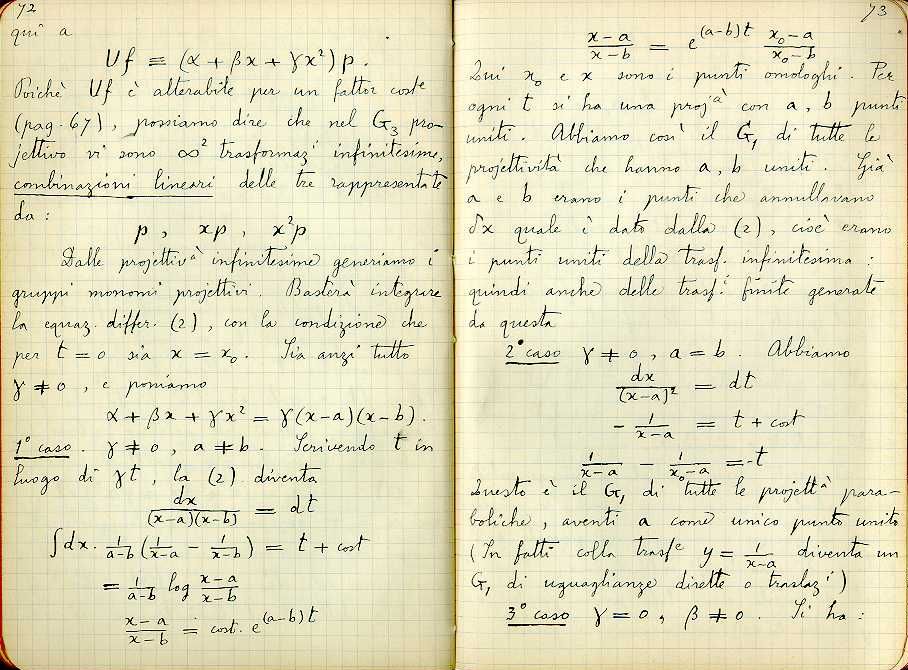 72
qui a
Uf ≡ (α + βx + γx²) p.
Poichè Uf è alterabile per un fattor coste
(pag. 67), possiamo dire che nel G₃ pro-
jettivo vi sono ∞² trasformazⁱ infinitesime,
combinazioni lineari delle tre rappresentate
da :
p , xp , x²p
Dalle projettivᵃ infinitesime generiamo i
gruppi monomi projettivi. Basterà integrare
la equaz. differ. (2), con la condizione che
per t = 0 sia x = x₀. Sia anzi tutto
γ ≠ 0 , e poniamo
α + βx + γx² = γ(x-a)(x-b).
1° caso. γ ≠ 0 , a ≠ b. Scrivendo t in
luogo di γt, la (2) diventa
dx/((x-a)(x-b)) = dt
∫dx. 1/(a-b) (1/(x-a) - 1/(x-b)) = t + cost
= 1/(a-b) log (x-a)/(x-b)
(x-a)/(x-b) = cost. e^((a-b)t)
73
(x-a)/(x-b) = e^((a-b)t) (x₀-a)/(x₀-b)
Qui x₀ e x sono i punti omologhi. Per
ogni t si ha una projᵃ con a, b punti
uniti. Abbiamo così il G₁ di tutte le
projettività che hanno a, b uniti. Già
a e b erano i punti che annullavano
δx quale è dato dalla (2), cioè erano
i punti uniti della trasf. infinitesima :
quindi anche delle trasfⁱ finite generate
da questa
2° caso γ ≠ 0 , a = b. Abbiamo
dx/(x-a)² = dt
- 1/(x-a) = t + cost
1/(x-a) - 1/(x₀-a) = -t
Questo è il G₁ di tutte le projettᵃ para-
boliche, aventi a come unico punto unito
(In fatti colla trasfᵉ y = 1/(x-a) diventa un
G₁ di uguaglianze dirette o traslazⁱ)
3° caso γ = 0 , β ≠ 0 . Si ha :